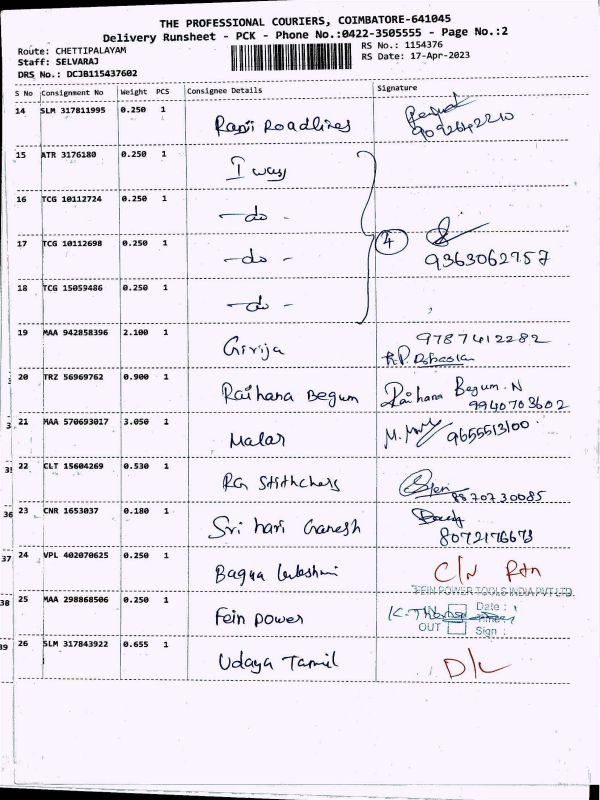 THE PROFESSIONAL COURIERS, COIMBATORE-641045
Delivery Runsheet - PCK - Phone No.:0422-3505555 - Page No.:2
Route: CHETTIPALAYAM
Staff: SELVARAJ
DRS No.: DCJB115437602
RS No.: 1154376
RS Date: 17-Apr-2023
S No Consignment No Weight PCS Consignee Details Signature
14 SLM 317811995 0.250 1 Ranji Roadlines 9092642210
15 ATR 3176180 0.250 1 I way
16 TCG 10112724 0.250 1 -do-
17 TCG 10112698 0.250 1 -do- 4 9363062757
18 TCG 15059486 0.250 1 -do-
19 MAA 942858396 2.100 1 Girija 9787412282
R.P.
20 TRZ 56969762 0.900 1 Raihana Begum Raihana Begum. N
9940703602
21 MAA 570693017 3.050 1 Malar 9655513100
35 22 CLT 15604269 0.530 1 RG 8870730085
36 23 CNR 1653037 0.180 1 Sri hari Ganesh
8072176673
37 24 VPL 402070625 0.250 1 Bagya C/N Rtn
FEIN POWER TOOLS INDIA PVT LTD.
38 25 MAA 298868506 0.250 1 Fein power IN Date :
OUT Sign :
39 26 SLM 317843922 0.655 1 Udaya Tamil D/L